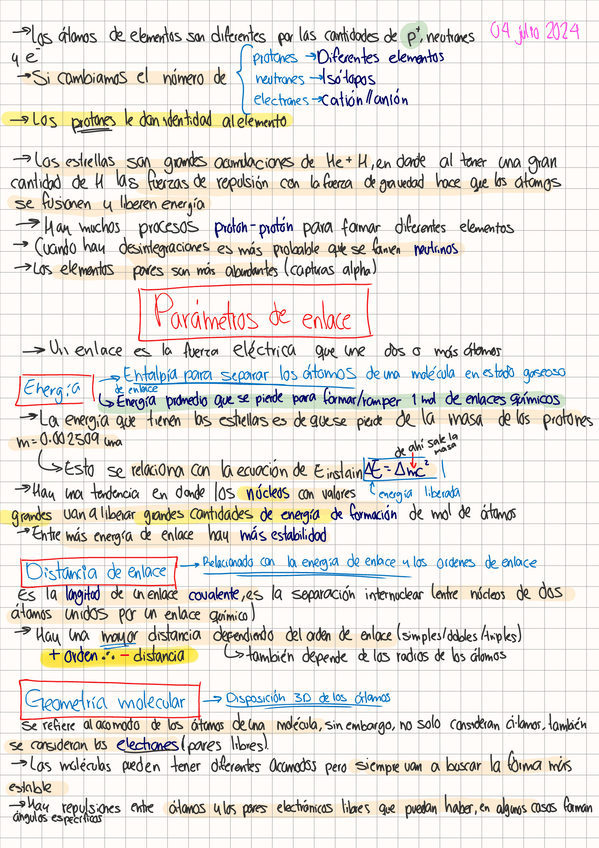 →Los átomos de elementos son diferentes por las cantidades de p⁺, neutrones 04 julio 2024
y e⁻
→Si cambiamos el número de
protones →Diferentes elementos
neutrones →Isótopos
electrones→catión//anión
→ Los protones le dan identidad al elemento
→ Las estrellas son grandes acumulaciones de He + H, en donde al tener una gran
cantidad de H las fuerzas de repulsión con la fuerza de gravedad hace que los átomos
se fusionen y liberen energía
→ Hay muchos procesos proton-protón para formar diferentes elementos
→ Cuando hay desintegraciones es más probable que se formen neutrinos
→Los elementos pares son más abundantes (capturas alpha)
Parámetros de enlace
→ Un enlace es la fuerza eléctrica que une dos o más átomos
Energía → Entalpía para separar los átomos de una molécula en estado gaseoso
de enlace
↳ Energía promedio que se pierde para formar/romper 1 mol de enlaces químicos
→ La energía que tienen las estrellas es de que se pierde de la masa de los protones
m=0.002509 uma
de ahí sale la masa
↳ Esto se relaciona con la ecuación de Einstein ΔE = Δmc²
→Hay una tendencia en donde los núcleos con valores energía liberada
grandes van a liberar grandes cantidades de energía de formación de mol de átomos
→Entre más energía de enlace hay más estabilidad
Distancia de enlace → Relacionado con la energía de enlace y los ordenes de enlace
Es la longitud de un enlace covalente, es la separación internuclear (entre núcleos de dos
átomos unidos por un enlace químico)
→ Hay una mayor distancia dependiendo del orden de enlace (simples/dobles/triples)
+ orden ∴ - distancia ↳también depende de los radios de los átomos
Geometría molecular → Disposición 3D de los átomos
Se refiere al acomodo de los átomos de una molécula, sin embargo, no solo consideran átomos, también
se consideran los electrones (pares libres).
→Las moléculas pueden tener diferentes acomodos pero siempre van a buscar la forma más
estable
→Hay repulsiones entre átomos y los pares electrónicos libres que puedan haber, en algunos casos forman
ángulos específicos